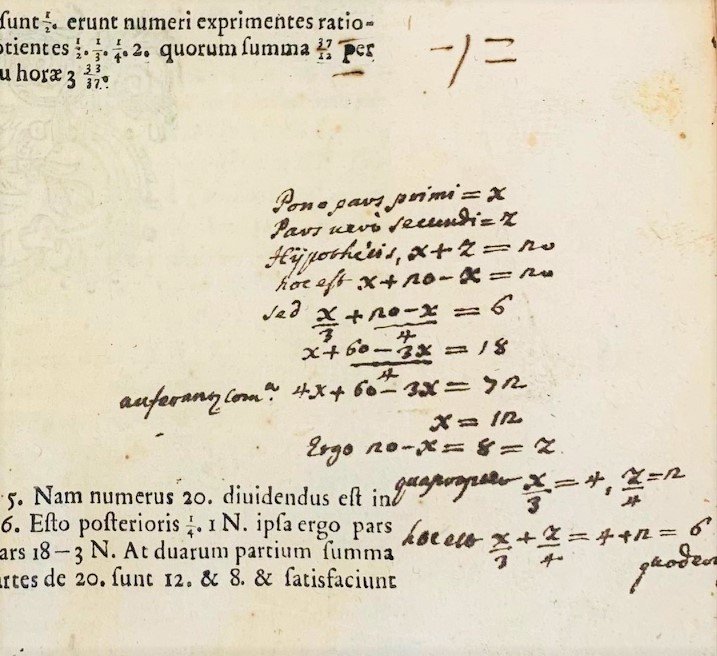 ſunt ½. erunt numeri exprimentes ratio-
otientes ½. ⅓. ¼. 2. quorum ſumma 37/12 per
u horæ 3 33/37.
Pono pars primi = x
Pars verò secundi = z
Hÿpothesis, x + z = 20
hoc est x + 20 - x = 20
sed x/3 + (20 - x)/4 = 6
x + (60 - 3x)/4 = 18
4x + 60 - 3x = 72
x = 12
Ergo 20 - x = 8 = z
quapropter x/3 = 4, z/4 = 2
5. Nam numerus 20. diuidendus eſt in
6. Eſto poſterioris ¼. 1 N. ipſa ergo pars
hoc est x/3 + z/4 = 4 + 2 = 6
ars 18 — 3 N. At duarum partium ſumma
rtes de 20. ſunt 12. & 8. & ſatisfaciunt